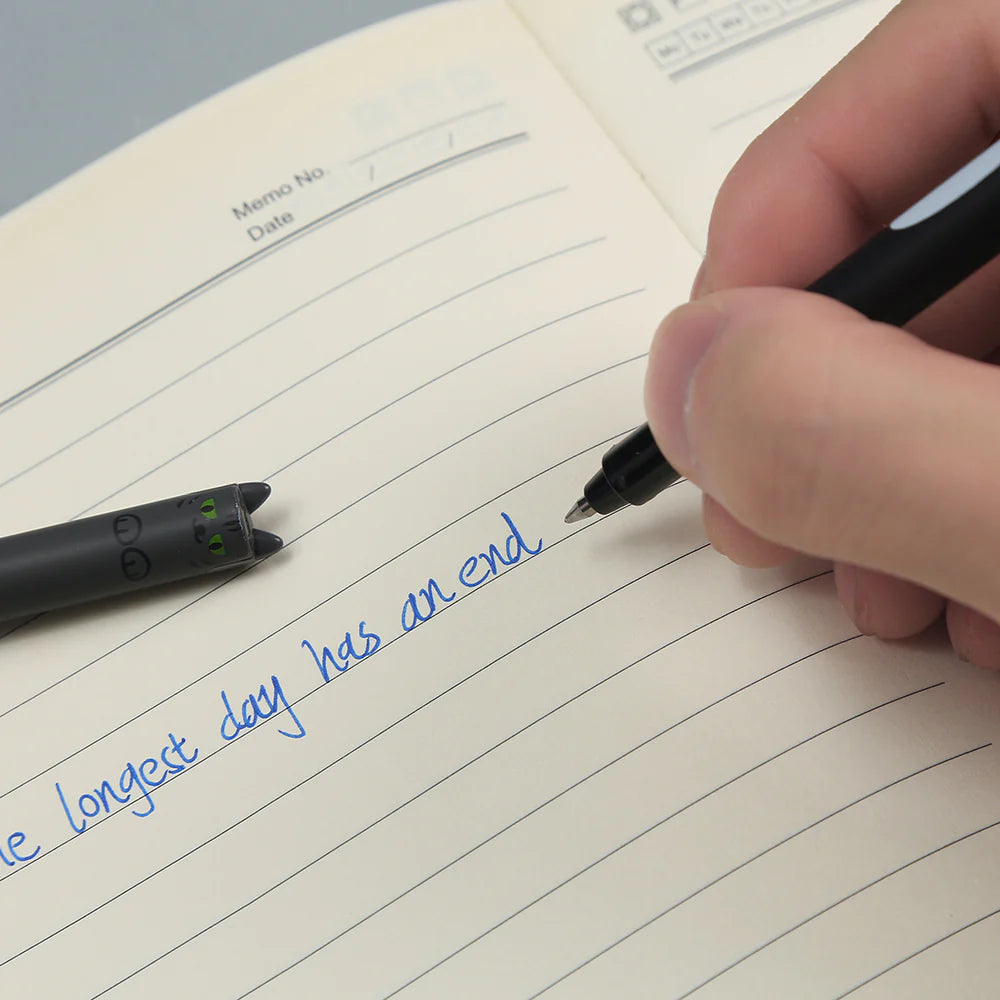 Mo Tu We Th
Memo No.
Date / /
longest day has an end